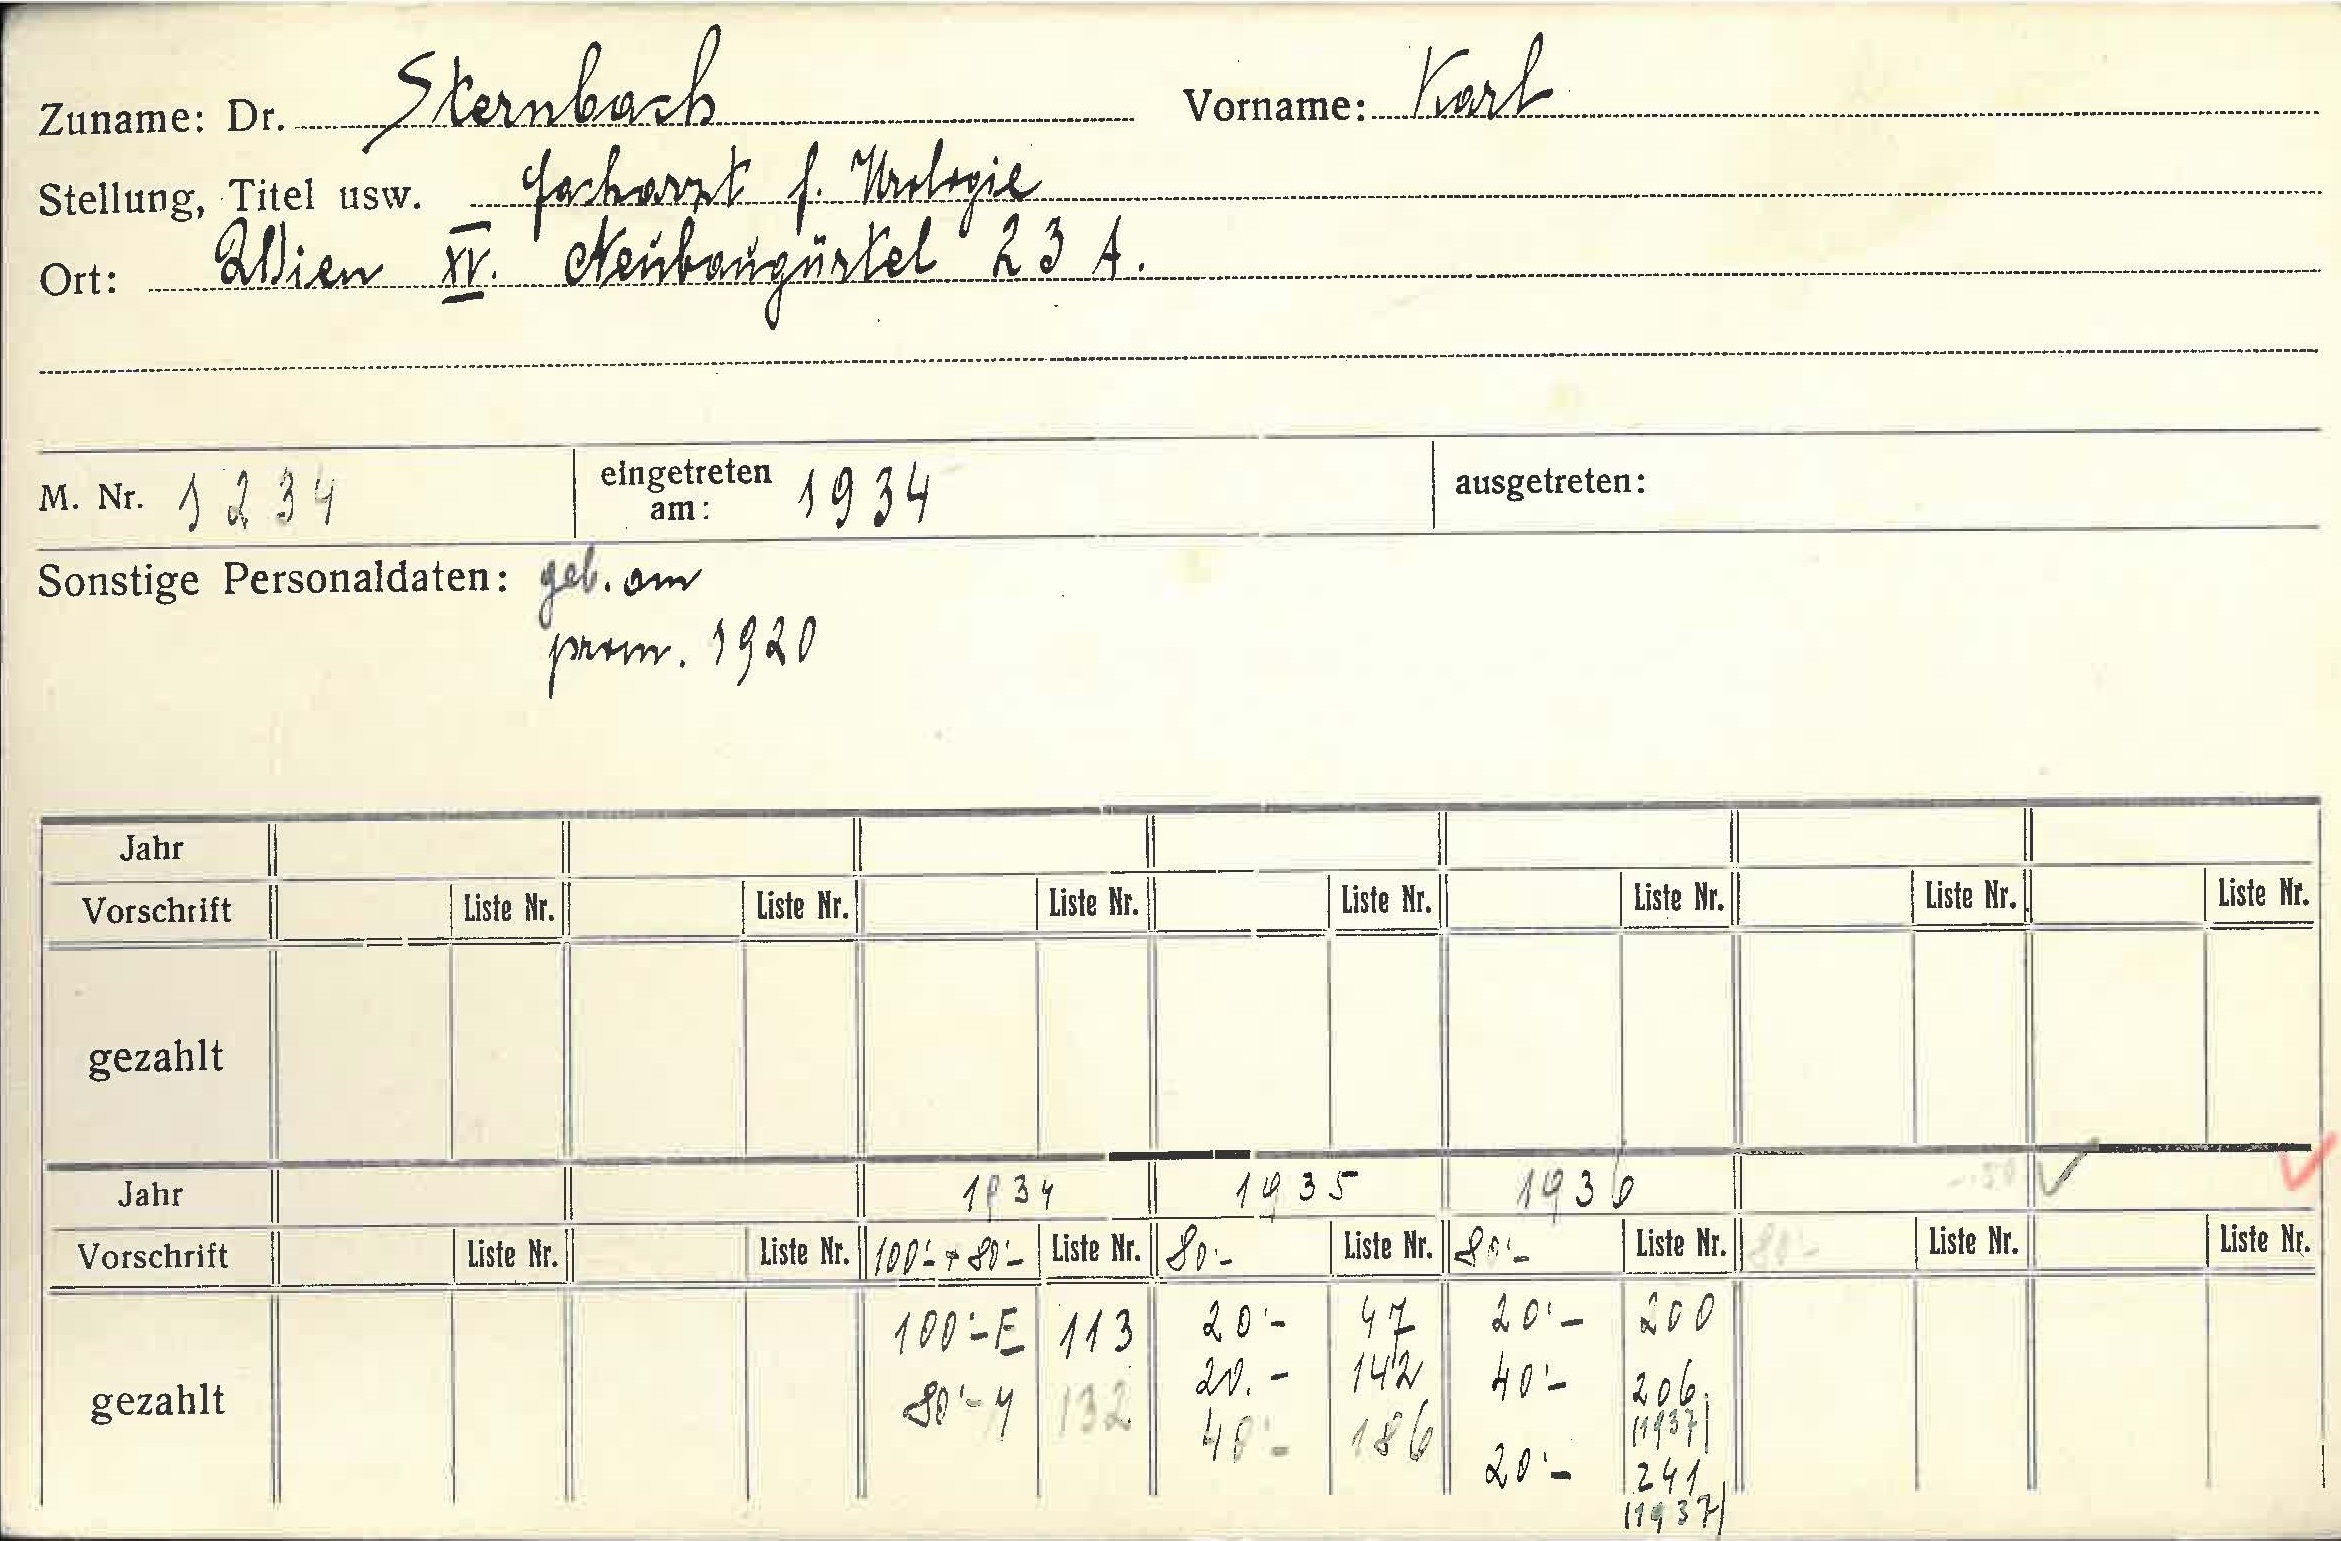 Zuname: Dr. Sternbach Vorname: Karl
Stellung, Titel usw. Facharzt f. Urologie
Ort: Wien XV. Neubaugürtel 23 A.
M. Nr. 1234 eingetreten am: 1934 ausgetreten:
Sonstige Personaldaten: geb. am
prom. 1920
Jahr
Vorschrift Liste Nr. Liste Nr. Liste Nr. Liste Nr. Liste Nr. Liste Nr. Liste Nr.
gezahlt
Jahr 1934 1935 1936
Vorschrift Liste Nr. Liste Nr. 100'- + 80'- Liste Nr. 80'- Liste Nr. 80'- Liste Nr. 80'- Liste Nr. Liste Nr.
gezahlt
100'- E 113 20'- 47 20'- 200
80'- 132 20.- 142 40'- 206
(1937)
40'- 186 20'- 241
(1937)